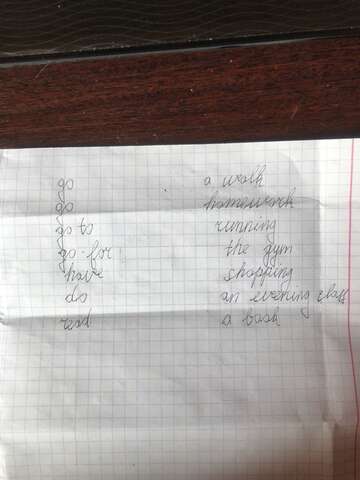 go a walk
go homework
go to running
go for the gym
have shopping
do an evening class
read a book